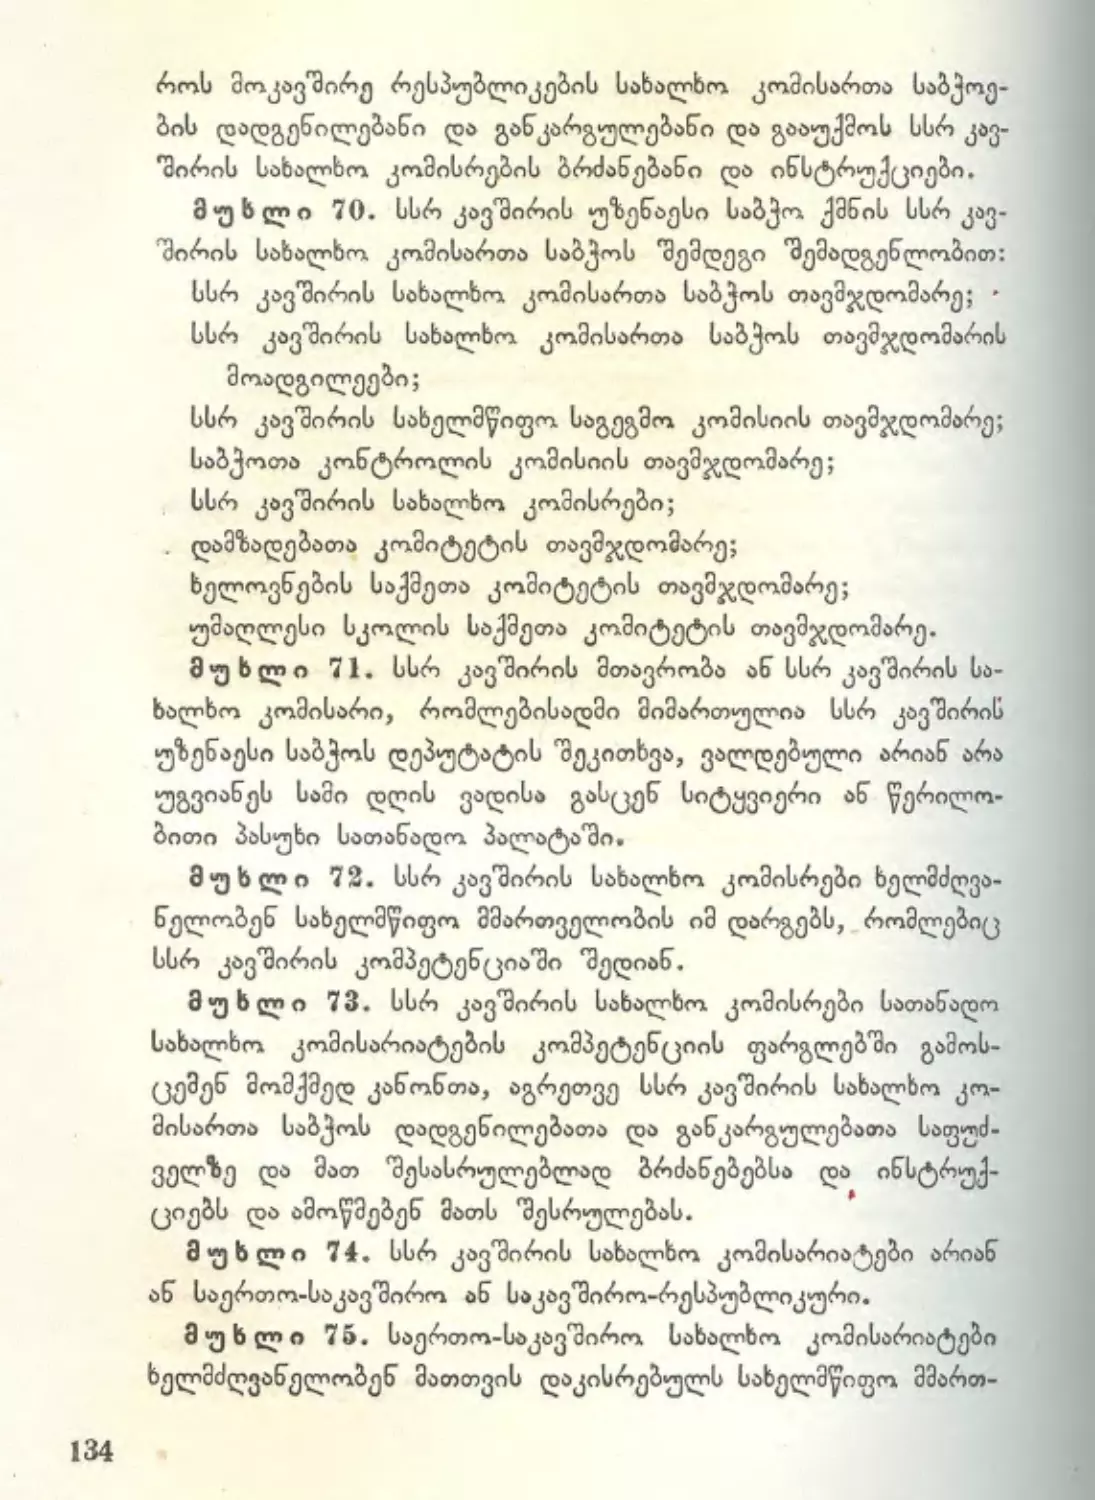 როს მოკავშირე რესპუბლიკების სახალხო კომისართა საბჭოე-
ბის დადგენილებანი და განკარგულებანი და გააუქმოს სსრ კავ-
შირის სახალხო კომისრების ბრძანებანი და ინსტრუქციები.
მუხლი 70. სსრ კავშირის უზენაესი საბჭო ქმნის სსრ კავ-
შირის სახალხო კომისართა საბჭოს შემდეგი შემადგენლობით:
სსრ კავშირის სახალხო კომისართა საბჭოს თავმჯდომარე;
სსრ კავშირის სახალხო კომისართა საბჭოს თავმჯდომარის
მოადგილეები;
სსრ კავშირის სახელმწიფო საგეგმო კომისიის თავმჯდომარე;
საბჭოთა კონტროლის კომისიის თავმჯდომარე;
სსრ კავშირის სახალხო კომისრები;
დამზადებათა კომიტეტის თავმჯდომარე;
ხელოვნების საქმეთა კომიტეტის თავმჯდომარე;
უმაღლესი სკოლის საქმეთა კომიტეტის თავმჯდომარე.
მუხლი 71. სსრ კავშირის მთავრობა ან სსრ კავშირის სა-
ხალხო კომისარი, რომლებისადმი მიმართულია სსრ კავშირის
უზენაესი საბჭოს დეპუტატის შეკითხვა, ვალდებული არიან არა
უგვიანეს სამი დღის ვადისა გასცენ სიტყვიერი ან წერილო-
ბითი პასუხი სათანადო პალატაში.
მუხლი 72. სსრ კავშირის სახალხო კომისრები ხელმძღვა-
ნელობენ სახელმწიფო მმართველობის იმ დარგებს, რომლებიც
სსრ კავშირის კომპეტენციაში შედიან.
მუხლი 73. სსრ კავშირის სახალხო კომისრები სათანადო
სახალხო კომისარიატების კომპეტენციის ფარგლებში გამოს-
ცემენ მომქმედ კანონთა, აგრეთვე სსრ კავშირის სახალხო კო-
მისართა საბჭოს დადგენილებათა და განკარგულებათა საფუძ-
ველზე და მათ შესასრულებლად ბრძანებებსა და ინსტრუქ-
ციებს და ამოწმებენ მათს შესრულებას.
მუხლი 74. სსრ კავშირის სახალხო კომისარიატები არიან
ან საერთო-საკავშირო ან საკავშირო-რესპუბლიკური.
მუხლი 75. საერთო-საკავშირო სახალხო კომისარიატები
ხელმძღვანელობენ მათთვის დაკისრებულს სახელმწიფო მმართ-
134